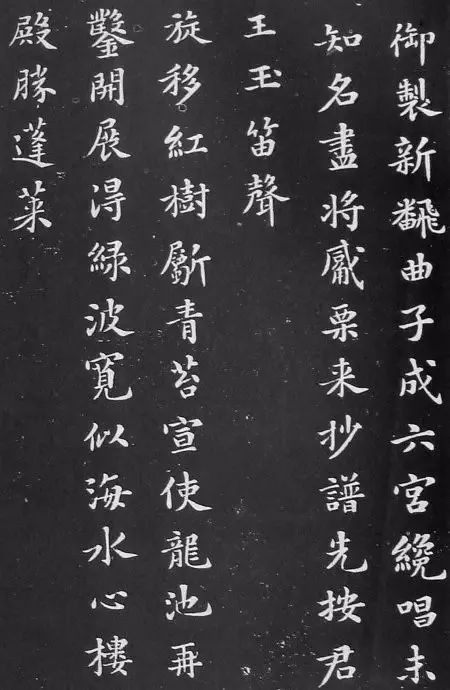 御製新飜曲子成六宮纔唱未
知名盡将觱栗来抄譜先按君
王玉笛聲
旋移紅樹斸青苔宣使龍池再
鑿開展淂緑波寛似海水心樓
殿勝蓬莱